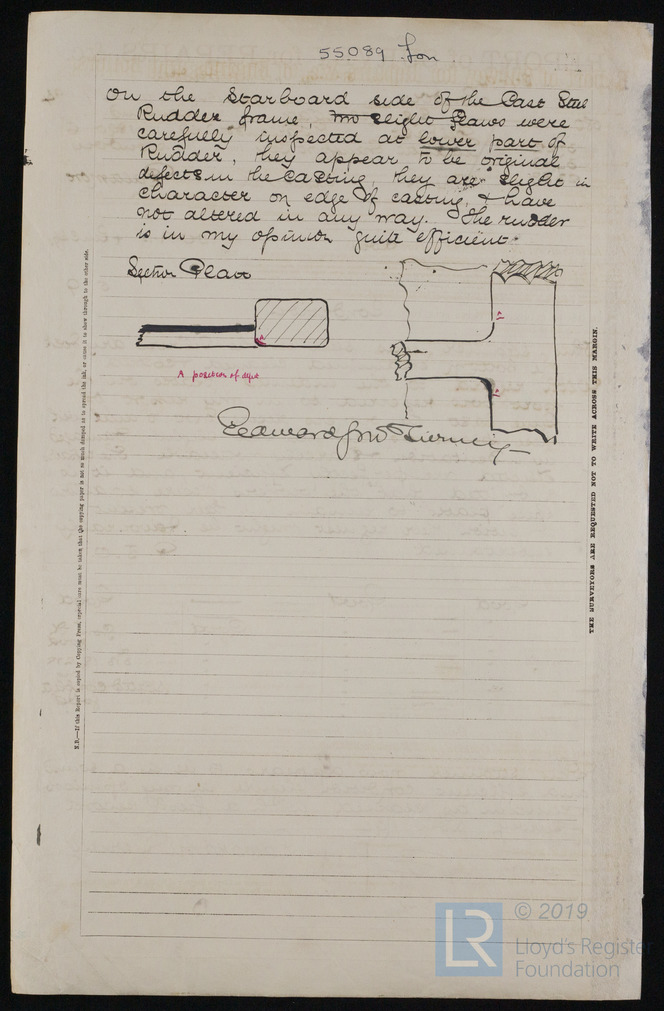 55089 Lon
On the Starboard side of the Cast Steel
Rudder frame, two slight flaws were
carefully inspected at lower part of
Rudder, they appear to be original
defects in the casting, they are slight in
character on edge of casting, & have
not altered in any way. The rudder
is in my opinion quite efficient.
Section Plan
A
A position of
A
A
Edward Tierney
N.B.—If this Report is copied by Copying Press, especial care must be taken that the copying paper is not so much damped as to spread the ink, or cause it to show through to the other side.
THE SURVEYORS ARE REQUESTED NOT TO WRITE ACROSS THIS MARGIN.
LR
© 2019
Lloyd's Register
Foundation